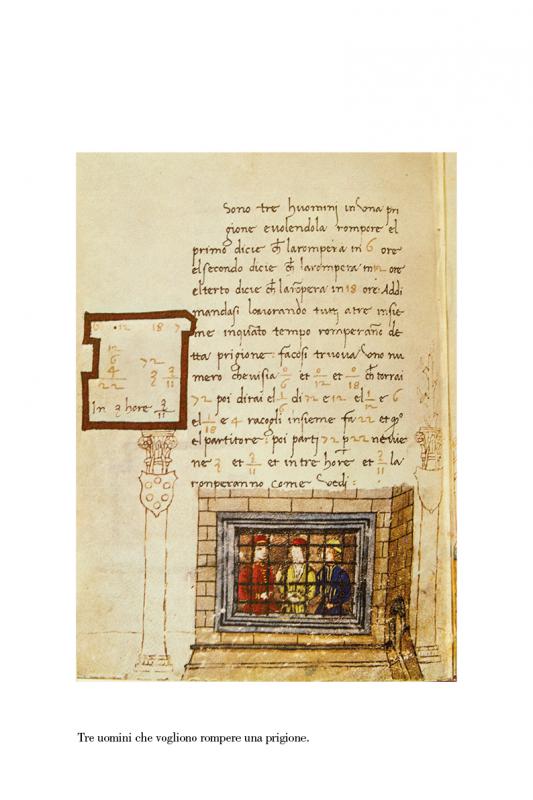 Sono tre huomini in una pri
gione e volendola rompere el
primo dicie ch̄ la rompera in 6 ore
el secondo dicie ch̄ la rompera in 12 ore
el terto dicie ch̄ la rōpera in 18 ore. Addi
mandasi lavorando tutti a tre insie
me in quāto tempo romperāno de
tta prigione: fa cosi truova uno nu
mero che visia 0/6 et 0/12 et 0/18 ch̄ torrai
72 poi dirai el 1/6 di 72 e 12. el 1/12 e 6
el 1/18 e 4 racogli insieme fa 22 et q̄o
el partitore: poi parti 72 p 22 ne vie
ne 3 et 3/11 et in tre hore et 3/11 la
ronperanno come vedi:
6 · 12 18 7
12
6
4
22
72
3 3/11
In 3 hore 3/11
Tre uomini che vogliono rompere una prigione.